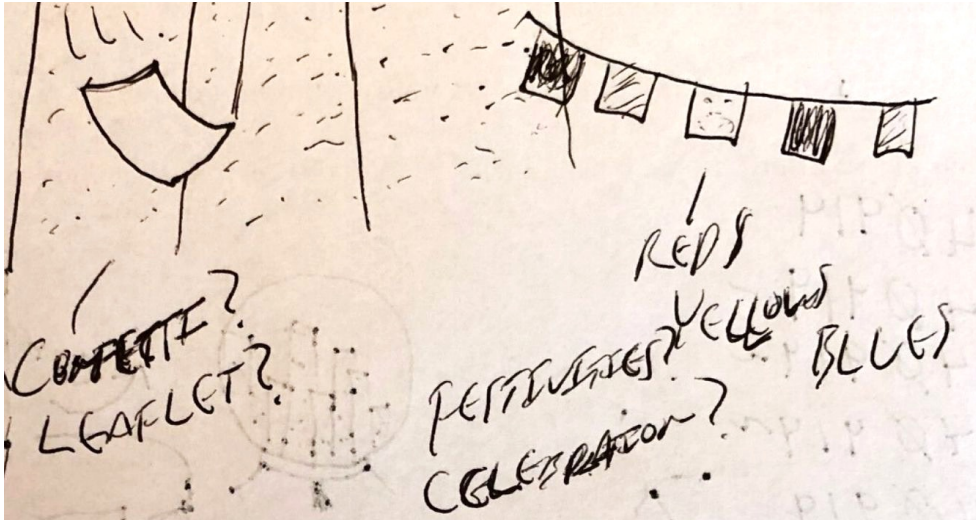 CONFETTI?
LEAFLET?
REDS
YELLOWS
BLUES
FESTIVITIES?
CELEBRATION?